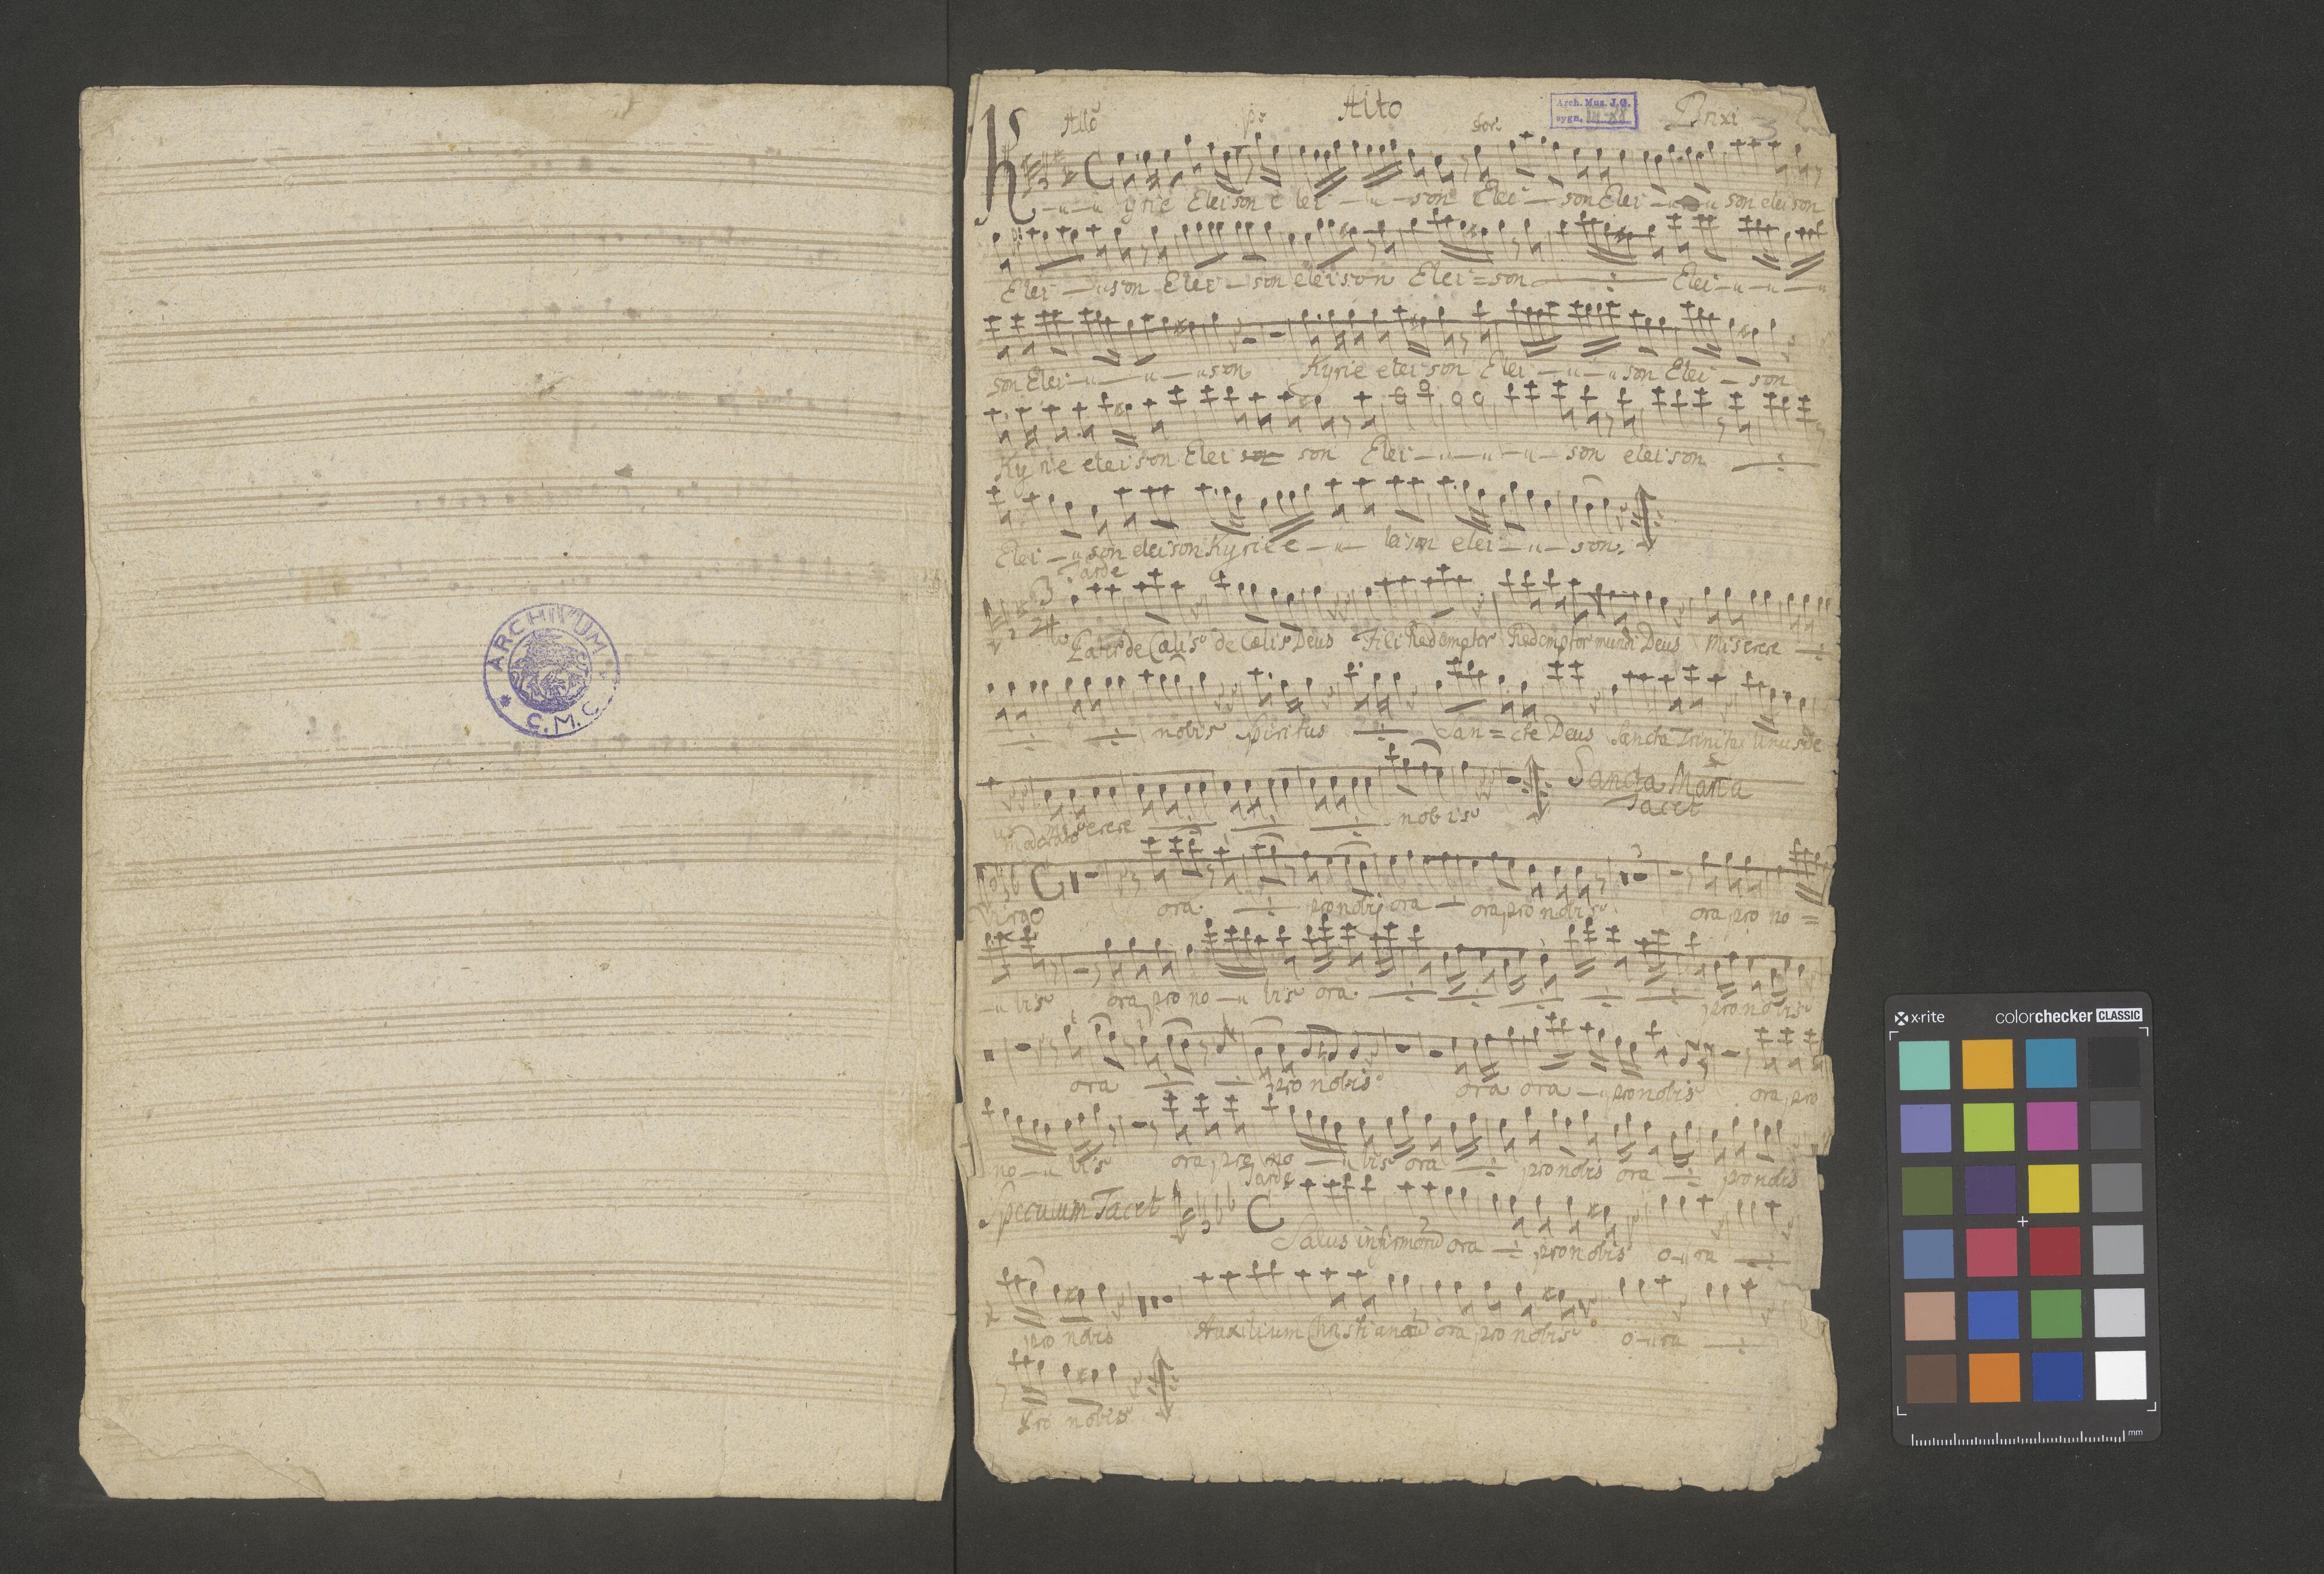 ARCHIVUM
C.M.C.
Allo
po
Alto
for.
Arch. Mus. J.G.
sygn.
Brixi
Kyrie Eleison e lei son Elei son Elei son eleison
Elei son Elei son eleison Elei = son Elei
son Elei son Kyrie eleison Elei son Elei son
Kyrie eleison Elei son Elei son eleison
Elei son eleison Kyrie e leison elei son.
Tarde
Pater de Cælis de Cælis Deus Fili Redemptor Redemptor mundi Deus Miserere
nobis Spiritus San = cte Deus Sancta Trinitas Unus De
us Miserere nobis Sancta Maria
Tacet
Moderato
Virgo ora pro nobis ora ora pro nobis ora pro no =
bis ora pro no bis ora pro nobis
ora pro nobis ora ora pro nobis ora pro
no bis ora pro no bis ora pro nobis ora pro nobis
Tarde
Speculum Tacet Salus infirmorũ ora pro nobis o ra
pro nobis Auxilium Christianorũ ora pro nobis o ra
pro nobis
x·rite colorchecker CLASSIC
mm